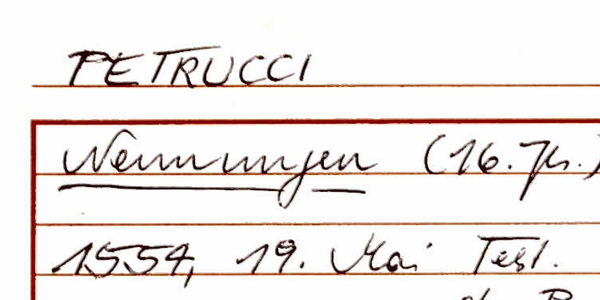 PETRUCCI
Nennungen (16. Jh.)
1554, 19. Mai Test.